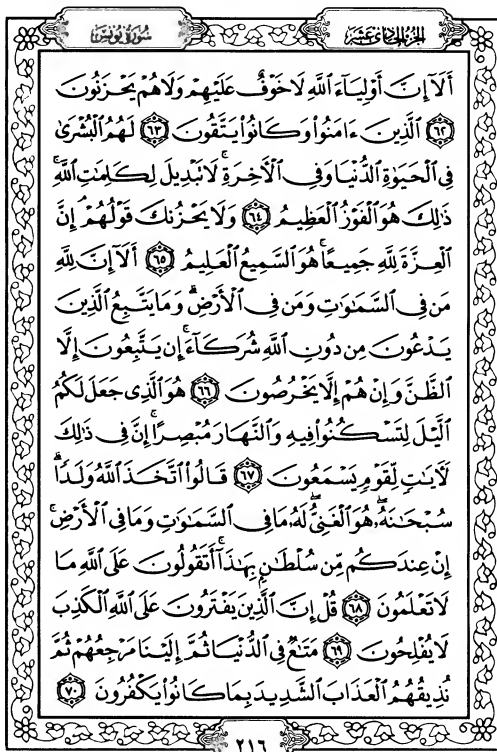 الجزء الحادى عشر
سورة يونس
أَلَآ إِنَّ أَوْلِيَآءَ ٱللَّهِ لَاخَوْفٌ عَلَيْهِمْ وَلَاهُمْ يَحْزَنُونَ
۝٦٢ ٱلَّذِينَ ءَامَنُوا۟ وَكَانُوا۟ يَتَّقُونَ ۝٦٣ لَهُمُ ٱلْبُشْرَىٰ
فِى ٱلْحَيَوٰةِ ٱلدُّنْيَا وَفِى ٱلْءَاخِرَةِ ۚ لَا تَبْدِيلَ لِكَلِمَٰتِ ٱللَّهِ ۚ
ذَٰلِكَ هُوَ ٱلْفَوْزُ ٱلْعَظِيمُ ۝٦٤ وَلَا يَحْزُنكَ قَوْلُهُمْ ۘ إِنَّ
ٱلْعِزَّةَ لِلَّهِ جَمِيعًا ۚ هُوَ ٱلسَّمِيعُ ٱلْعَلِيمُ ۝٦٥ أَلَآ إِنَّ لِلَّهِ
مَن فِى ٱلسَّمَٰوَٰتِ وَمَن فِى ٱلْأَرْضِ ۗ وَمَا يَتَّبِعُ ٱلَّذِينَ
يَدْعُونَ مِن دُونِ ٱللَّهِ شُرَكَآءَ ۚ إِن يَتَّبِعُونَ إِلَّا
ٱلظَّنَّ وَإِنْ هُمْ إِلَّا يَخْرُصُونَ ۝٦٦ هُوَ ٱلَّذِى جَعَلَ لَكُمُ
ٱلَّيْلَ لِتَسْكُنُوا۟ فِيهِ وَٱلنَّهَارَ مُبْصِرًا ۚ إِنَّ فِى ذَٰلِكَ
لَءَايَٰتٍ لِّقَوْمٍ يَسْمَعُونَ ۝٦٧ قَالُوا۟ ٱتَّخَذَ ٱللَّهُ وَلَدًا ۗ
سُبْحَٰنَهُۥ ۖ هُوَ ٱلْغَنِىُّ ۖ لَهُۥ مَا فِى ٱلسَّمَٰوَٰتِ وَمَا فِى ٱلْأَرْضِ ۚ
إِنْ عِندَكُم مِّن سُلْطَٰنٍۭ بِهَٰذَآ ۚ أَتَقُولُونَ عَلَى ٱللَّهِ مَا
لَا تَعْلَمُونَ ۝٦٨ قُلْ إِنَّ ٱلَّذِينَ يَفْتَرُونَ عَلَى ٱللَّهِ ٱلْكَذِبَ
لَا يُفْلِحُونَ ۝٦٩ مَتَٰعٌ فِى ٱلدُّنْيَا ثُمَّ إِلَيْنَا مَرْجِعُهُمْ ثُمَّ
نُذِيقُهُمُ ٱلْعَذَابَ ٱلشَّدِيدَ بِمَا كَانُوا۟ يَكْفُرُونَ ۝٧٠
٢١٦